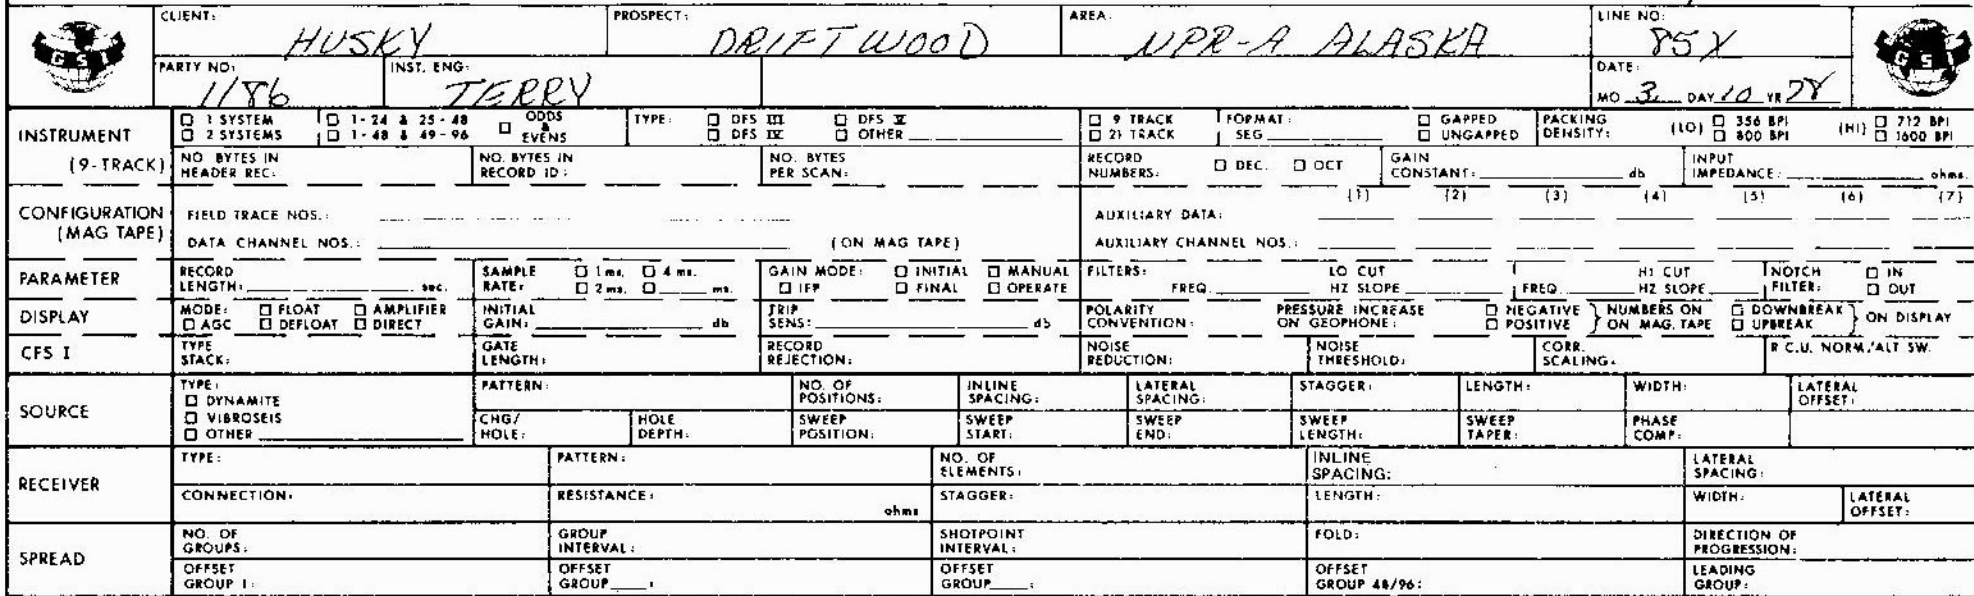 CLIENT: HUSKY PROSPECT: DRIFTWOOD AREA: NPR-A ALASKA LINE NO: 85X
GSI GSI
PARTY NO: 1186 INST. ENG: TERRY DATE: MO 3 DAY 10 YR 78
INSTRUMENT (9-TRACK) □ 1 SYSTEM □ 1-24 & 25-48 □ ODDS & EVENS TYPE: □ DFS III □ DFS V □ 9 TRACK FORMAT: □ GAPPED PACKING DENSITY: (LO) □ 356 BPI (HI) □ 712 BPI
□ 2 SYSTEMS □ 1-48 & 49-96 □ DFS IV □ OTHER □ 21 TRACK SEG □ UNGAPPED □ 800 BPI □ 1600 BPI
NO. BYTES IN HEADER REC: NO. BYTES IN RECORD ID: NO. BYTES PER SCAN: RECORD NUMBERS: □ DEC. □ OCT GAIN CONSTANT: db INPUT IMPEDANCE: ohms.
CONFIGURATION (MAG TAPE) FIELD TRACE NOS.: AUXILIARY DATA: (1) (2) (3) (4) (5) (6) (7)
DATA CHANNEL NOS.: (ON MAG TAPE) AUXILIARY CHANNEL NOS.:
PARAMETER RECORD LENGTH: sec. SAMPLE RATE: □ 1 ms. □ 4 ms. □ 2 ms. □ ms. GAIN MODE: □ INITIAL □ MANUAL □ IFP □ FINAL □ OPERATE FILTERS: LO CUT FREQ. HZ SLOPE HI CUT FREQ. HZ SLOPE NOTCH FILTER: □ IN □ OUT
DISPLAY MODE: □ FLOAT □ AMPLIFIER □ AGC □ DEFLOAT □ DIRECT INITIAL GAIN: db TRIP SENS: db POLARITY CONVENTION: PRESSURE INCREASE ON GEOPHONE: □ NEGATIVE □ POSITIVE } NUMBERS ON ON MAG. TAPE □ DOWNBREAK □ UPBREAK } ON DISPLAY
CFS I TYPE STACK: GATE LENGTH: RECORD REJECTION: NOISE REDUCTION: NOISE THRESHOLD: CORR. SCALING: R.C.U. NORM./ALT SW.
SOURCE TYPE: □ DYNAMITE □ VIBROSEIS □ OTHER PATTERN: NO. OF POSITIONS: INLINE SPACING: LATERAL SPACING: STAGGER: LENGTH: WIDTH: LATERAL OFFSET:
CHG/HOLE: HOLE DEPTH: SWEEP POSITION: SWEEP START: SWEEP END: SWEEP LENGTH: SWEEP TAPER: PHASE COMP:
RECEIVER TYPE: PATTERN: NO. OF ELEMENTS: INLINE SPACING: LATERAL SPACING:
CONNECTION: RESISTANCE: ohms STAGGER: LENGTH: WIDTH: LATERAL OFFSET:
SPREAD NO. OF GROUPS: GROUP INTERVAL: SHOTPOINT INTERVAL: FOLD: DIRECTION OF PROGRESSION:
OFFSET GROUP 1: OFFSET GROUP____: OFFSET GROUP____: OFFSET GROUP 48/96: LEADING GROUP: